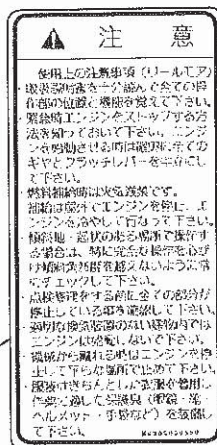 ⚠ 注 意
使用上の注意事項(リールモア)
取扱説明書を十分読んで全ての操
作部の位置と機能を覚えて下さい。
緊急時エンジンをストップする方
法を知っておいて下さい。エンジ
ンを始動させる時は確実に全ての
ギヤとクラッチレバーを中立にし
て下さい。
・燃料補給時は火気厳禁です。
補給は屋外でエンジンを停止、エ
ンジンを冷やして行なって下さい。
・傾斜地・起状のある場所で操作す
る場合は、特に安全な操作を心が
け傾斜角の限を越えないように常
にチェックして下さい。
・点検修理をする前に全ての部分が
停止している事を確認して下さい。
・適切な換気装置のない建物内では
エンジンは始動しないで下さい。
・機械から離れる時はエンジンを停
止して平らな場所で止めて下さい。
・服装はきちんとした衣服を着用し
作業に適した保護具(眼鏡・靴・
ヘルメット・手袋など)を装備し
て下さい。